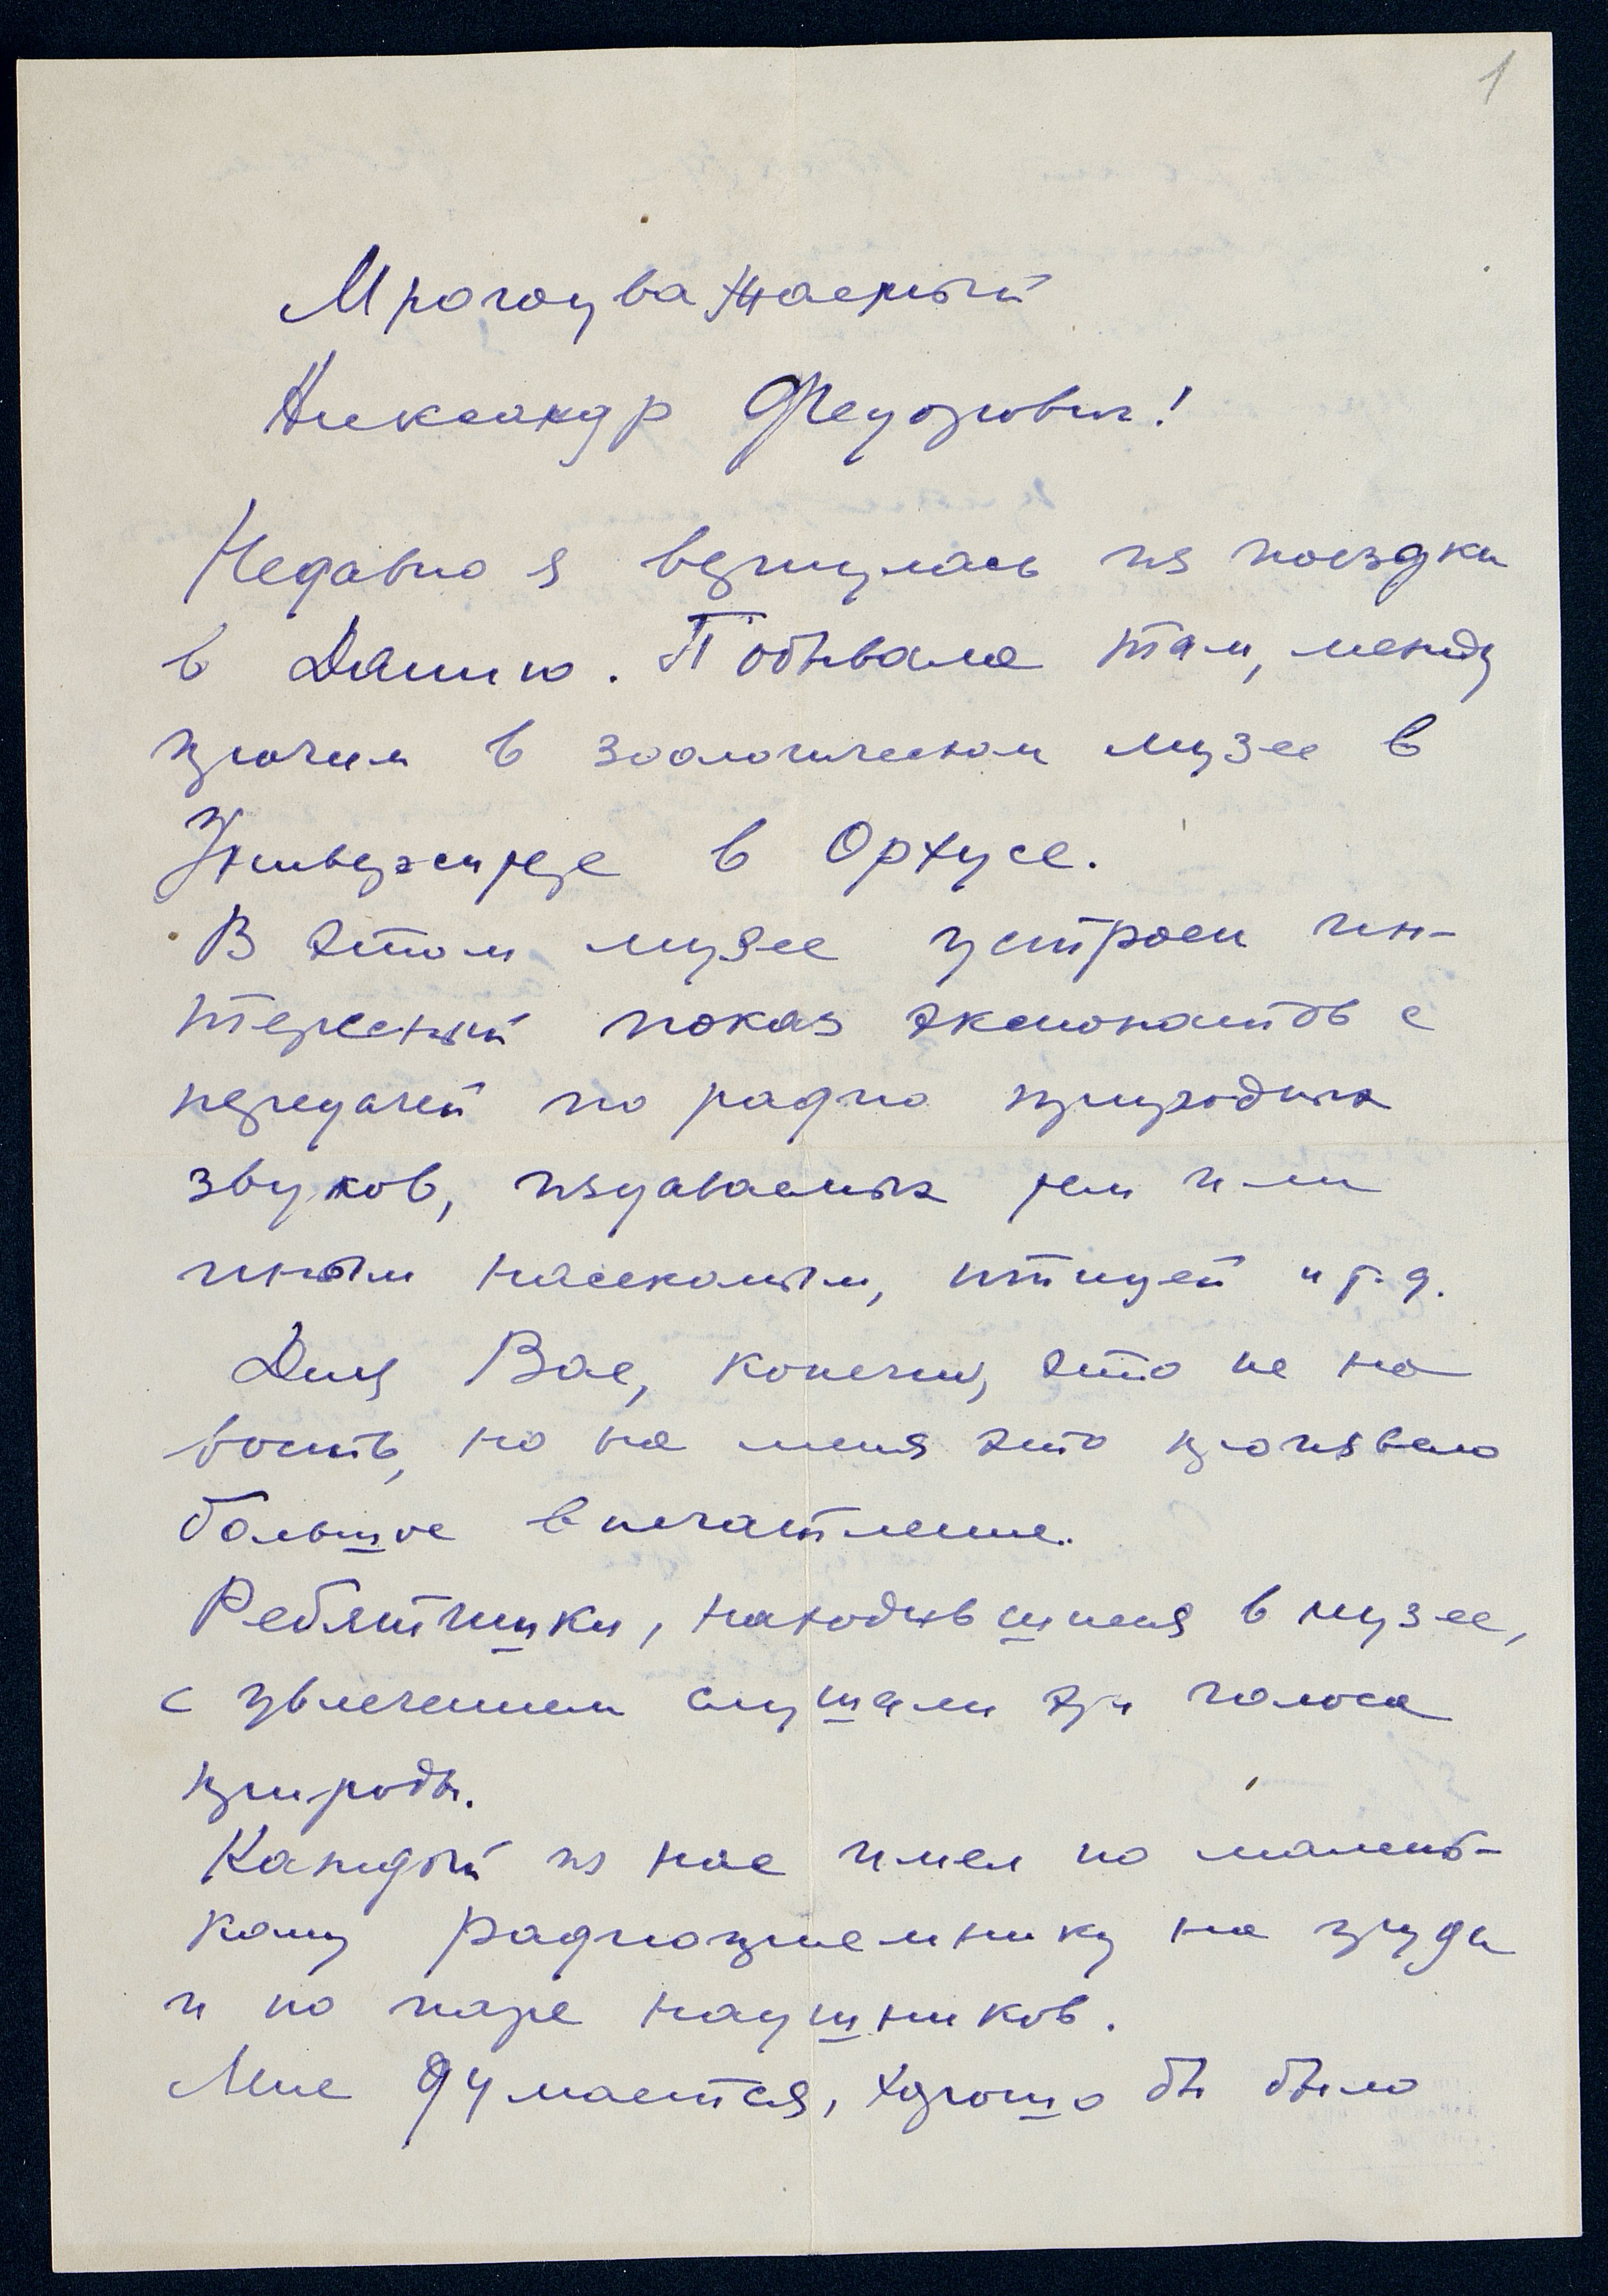 1
Многоуважаемый
Александр Федорович!
Недавно я вернулась из поездки
в Данию. Побывала там, между
прочим в зоологическом музее в
Университете в Орхусе.
В этом музее устроен ин-
тересный показ экспонатов с
передачей по радио природных
звуков, издаваемых тем или
иным насекомым, птицей и т.д.
Для Вас, конечно, это не но
вость, но на меня это произвело
большое впечатление.
Ребятишки, находившиеся в музее,
с увлечением слушали эти голоса
природы.
Каждый из нас имел по малень-
кому радиоприемнику на груди
и по паре наушников.
Мне думается, хорошо бы было